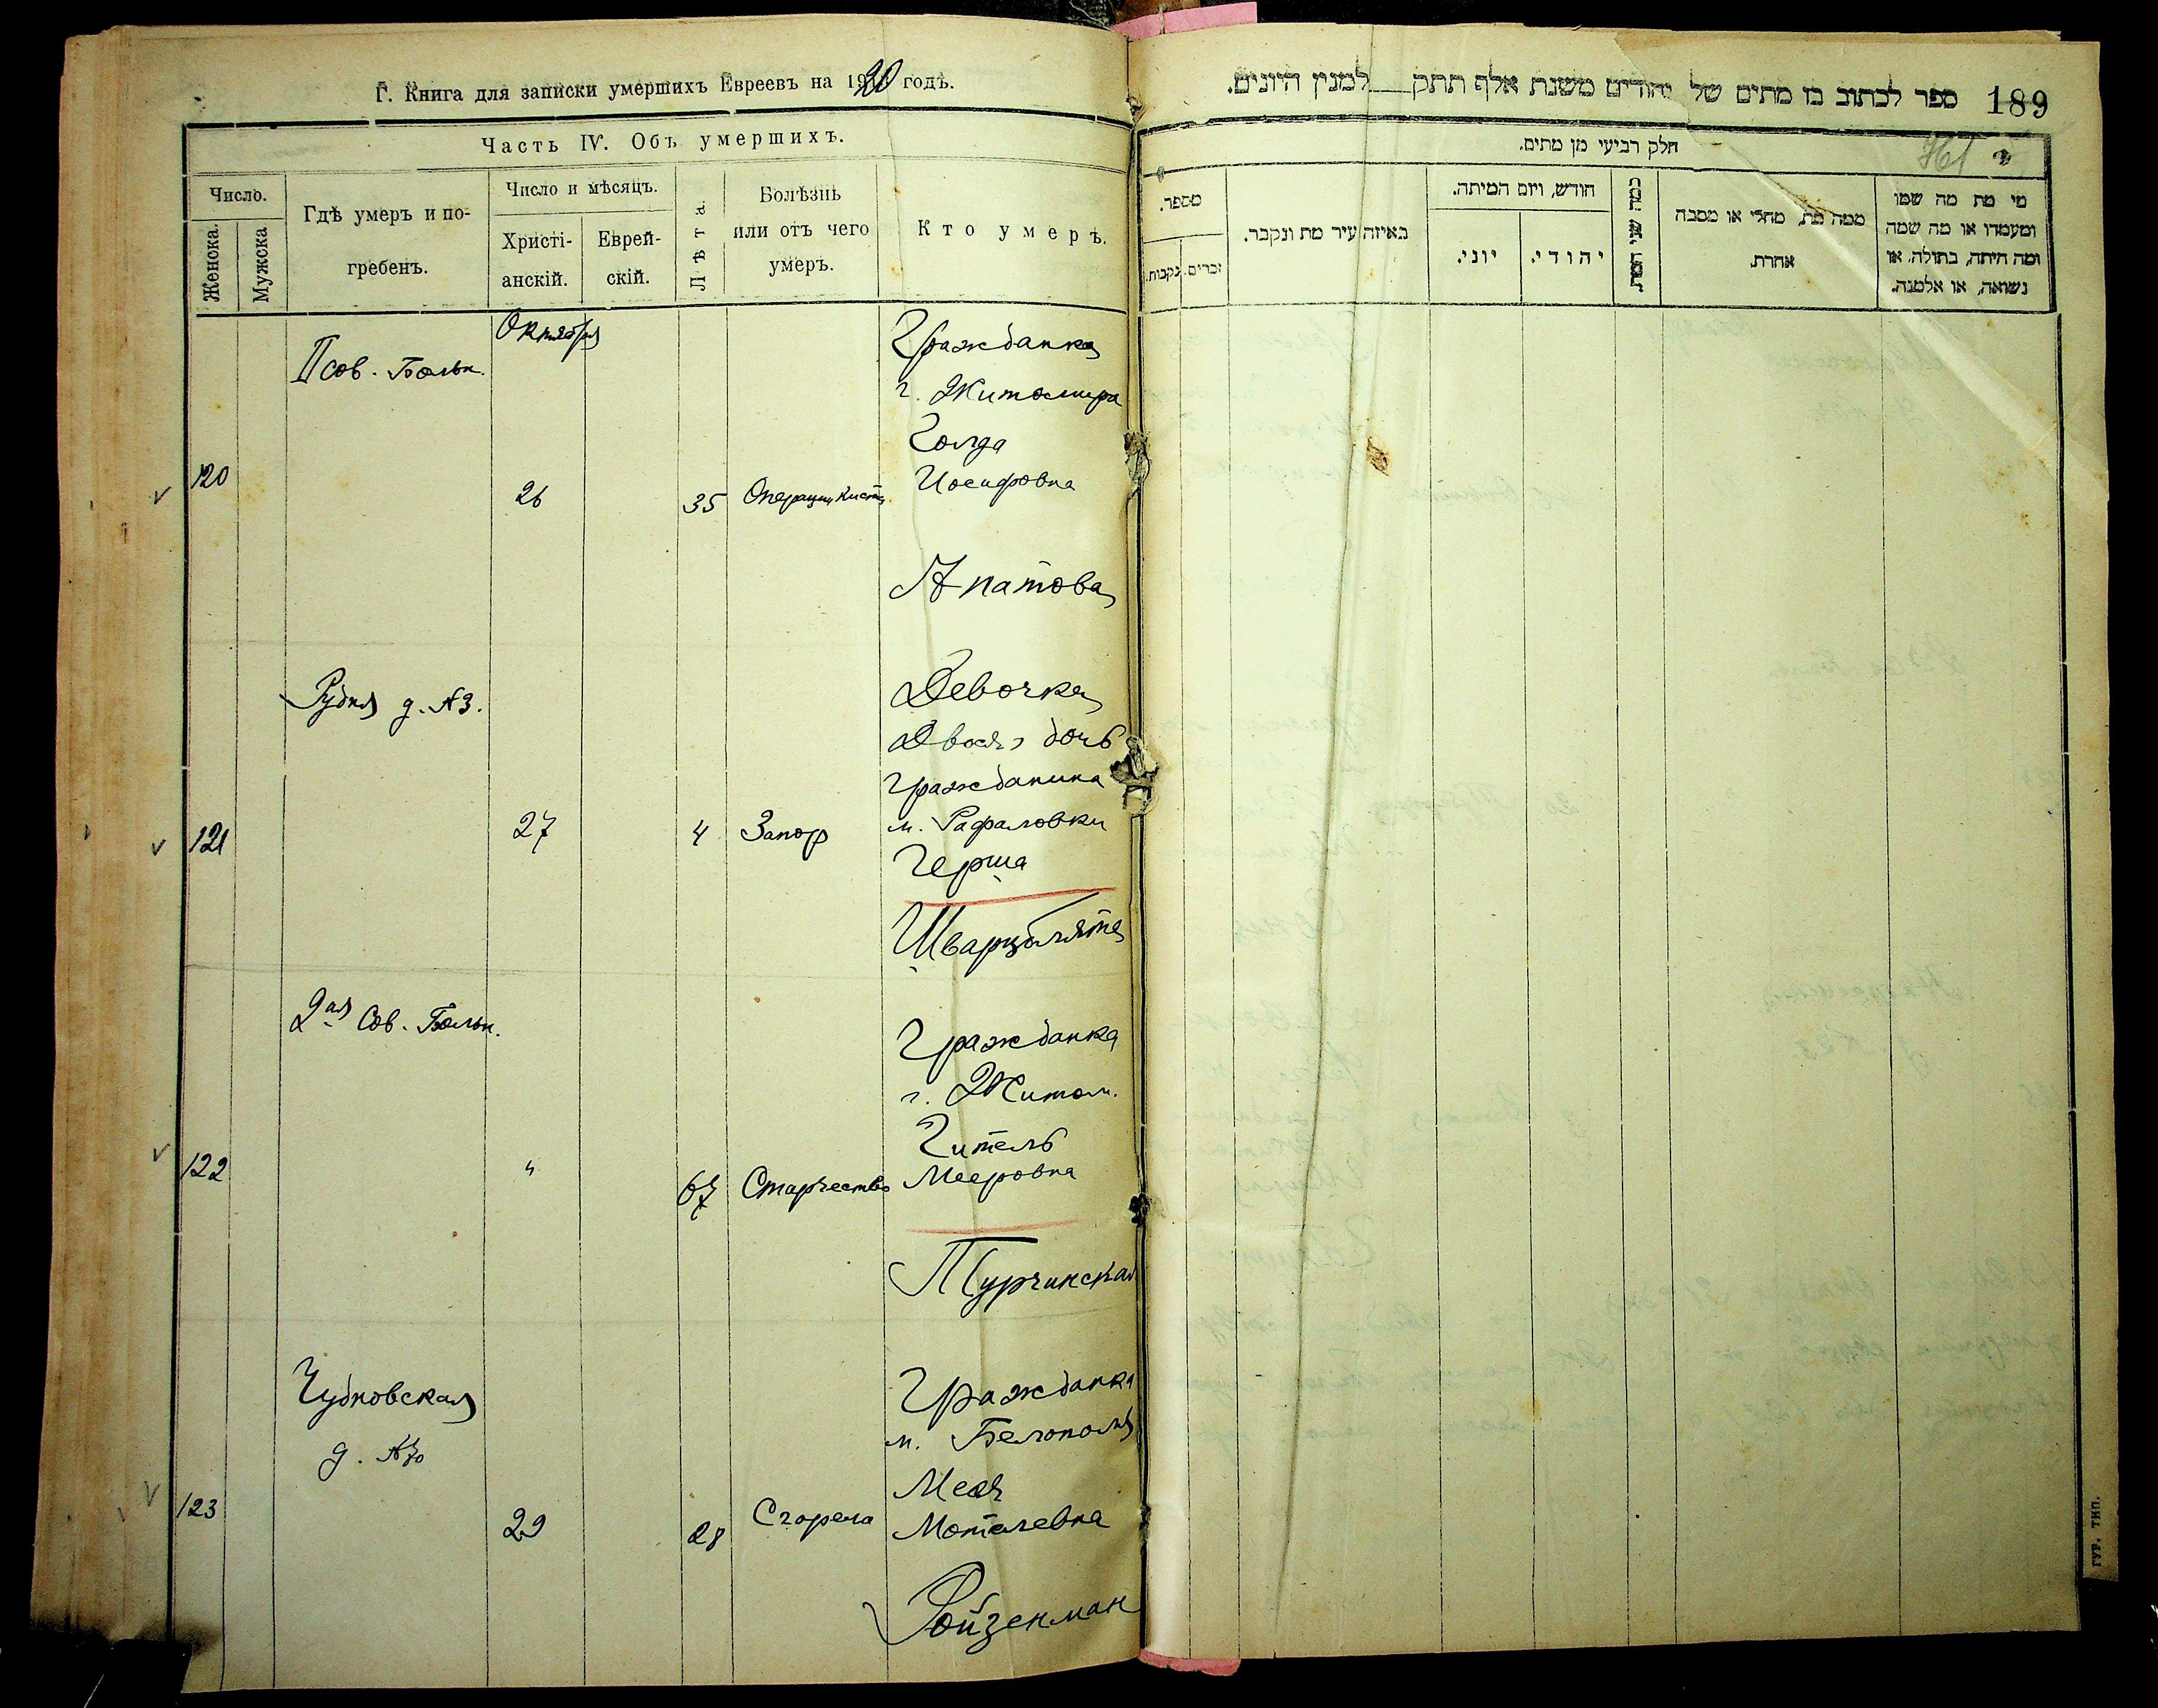 Г. Книга для записки умершихъ Евреевъ на 1920 годъ.
Часть IV. Объ умершихъ.
Число.
Женска.
Мужска
Гдѣ умеръ и по-
гребенъ.
Число и мѣсяцъ.
Христі-
анскій.
Еврей-
скій.
Лѣта.
Болѣзнь
или отъ чего
умеръ.
Кто умеръ.
Октября
II сов. Больн.
Гражданка
г. Житомира
Голда
120
26
35
Операция кисты
Иосифовна
Апатова
Рудня д. №3.
Девочка
Двося дочь
гражданина
121
27
4
Запор
м. Рафаловки
Герша
Шварцблята
2ая Сов. Больн.
Гражданка
г. Житом.
Гитель
122
"
67
Старчество
Мееровна
Турчинская
Чудновская
д. №
Гражданка
м. Белополья
Меся
123
29
28
Сгорела
Мотелевна
Ройзенман
ספר לכתוב בו מתים של יהודים משנת אלף תתק למנין היונים.
189
חלק רביעי מן מתים.
מספר.
נקבות.
זכרים.
באיזה עיר מת ונקבר.
חודש, ויום המיתה.
יוני.
יהודי.
כמה שני המת
ממה מת, מחלי או מסבה
אחרת.
מי מת מה שמו
ומעמדו או מה שמה
ומה היתה, בתולה, או
נשואה, או אלמנה.
ГУР. ТИП.